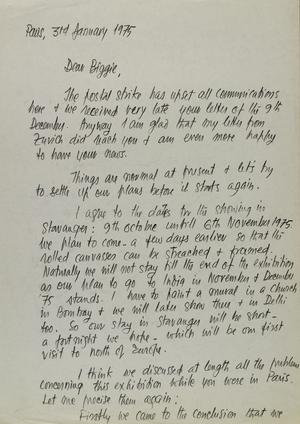 Paris, 31d January 1975
Dear Biggie,
The postal strike has upset all communications
here & we received very late your letter of the 9th
December. Anyway I am glad that my letter from
Zurich did reach you & am even more happy
to have your news.
Things are normal at present & let's try
to settle up our plans before it starts again.
I agree to the dates for the showing in
Stavanger: 9th october untill 6th November 1975.
We plan to come a few days earlier so that the
rolled canvasses can be streached & framed.
Naturally we will not stay till the end of the exhibition
as our plan to go to India in November & December
'75 stands. I have to paint a mural in a church
in Bombay & we will later show there & in Delhi
too. So our stay in Stavanger will be short -
a fortnight we hope - which will be our first
visit to north of Europe.
I think we discussed at length all the problems
concerning this exhibition while you were in Paris.
Let me precise them again:
Firstly we came to the conclusion that we